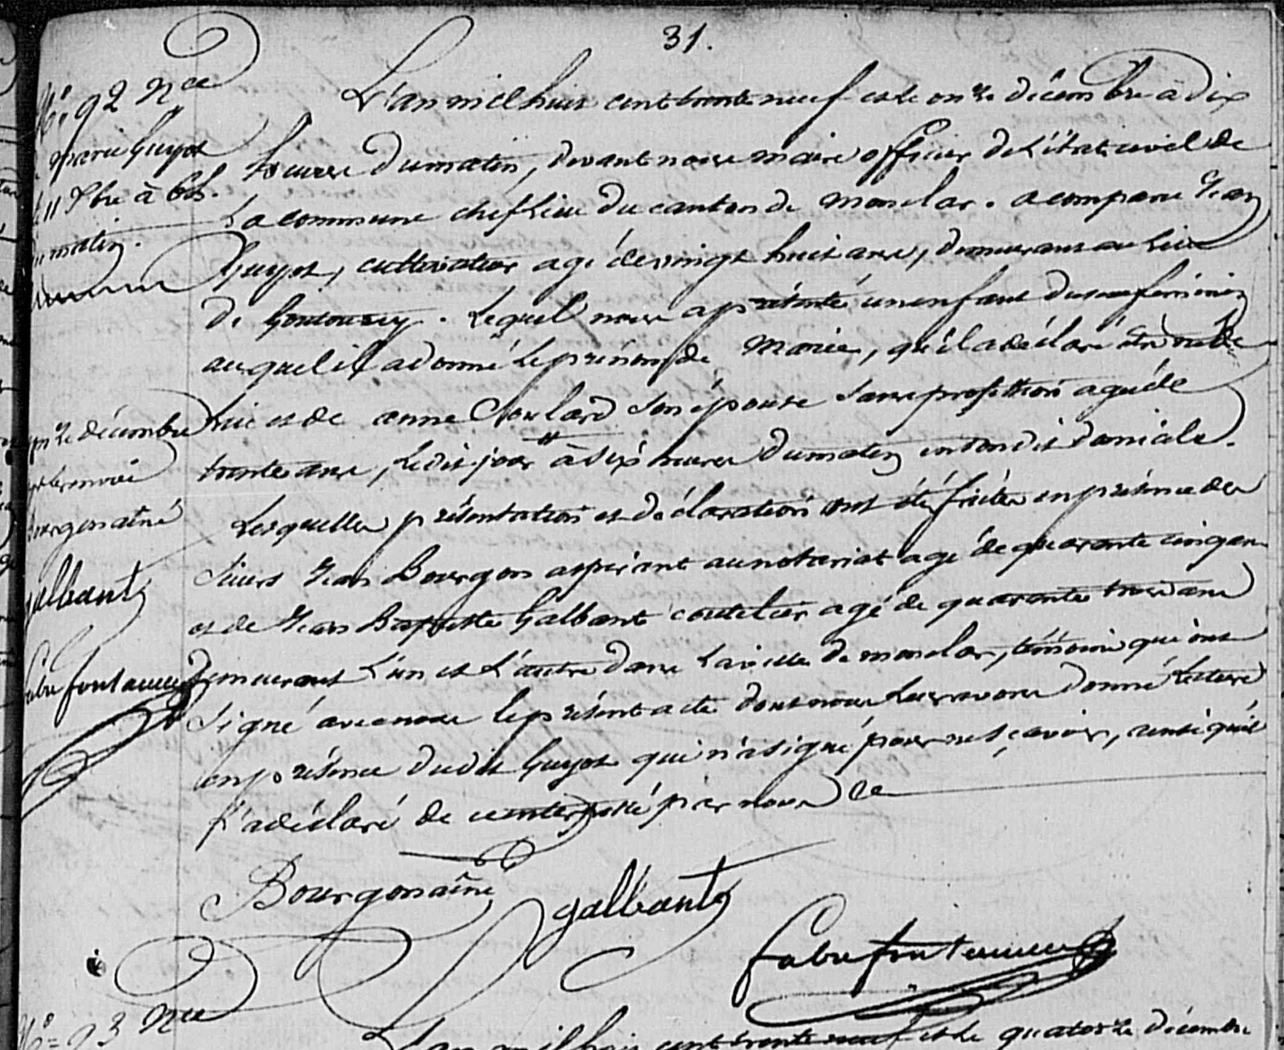 31.
N.° 92 Nce
marie Guyot
le 11 Xbre à 6h.
du matin.
L'an mil huit cent trente neuf et le onze décembre à dix
heures du matin, devant nous maire officier de l'état civil de
la commune chef lieu du canton de monclar. a comparu Jean
Guyot, cultivateur agé de vingt huit ans, demeurant au lieu
de . Lequel nous a présenté un enfant du sexe féminin
auquel il a donné le prénom de Marie, qu'il a déclaré être né de
lui et de anne Soulard son épouse sans profession agée de
trente ans, ledit jour " à six heures du matin en son dit domicile.
Lesquelles présentation et déclaration ont été faites en présence des
Sieurs Jean Bourgon aspirant au notariat agé de quarante cinq ans
et de Jean Baptiste Galbant coutelier agé de quarante trois ans
demeurant l'un et l'autre dans la ville de monclar, témoins qui ont
signé avec nous le présent acte dont nous leur avons donné lecture
en présence dudit Guyot qui n'a signé pour ne sçavoir, ainsi qu'il
l'a déclaré de ce interpellé par nous
" onze décembre
renvoi
Bourgon aîné
galbant
Fabre fontanieu
Bourgon aîné
galbant
Fabre fontanieu
N.° 93 Nce
L'an mil huit cent trente neuf et le quatorze décembre